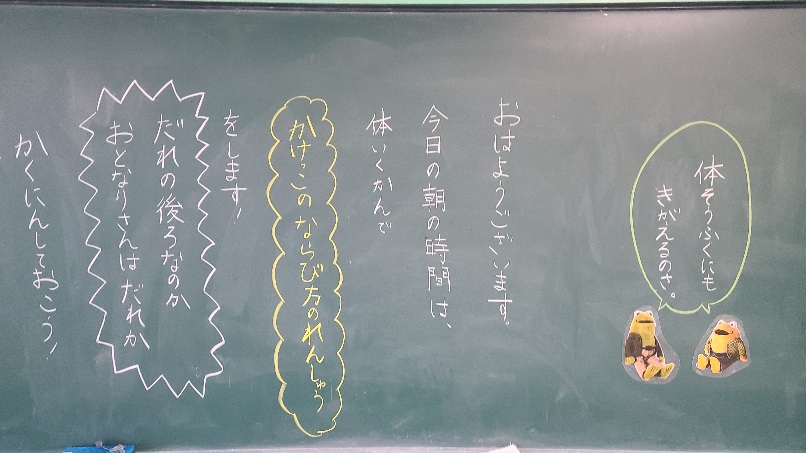 体そうふくにも
きがえるのさ。
おはようございます。
今日の朝の時間は、
体いくかんで
かけっこのならび方のれんしゅう
をします!
だれの後ろなのか
おとなりさんはだれか
かくにんしておこう!